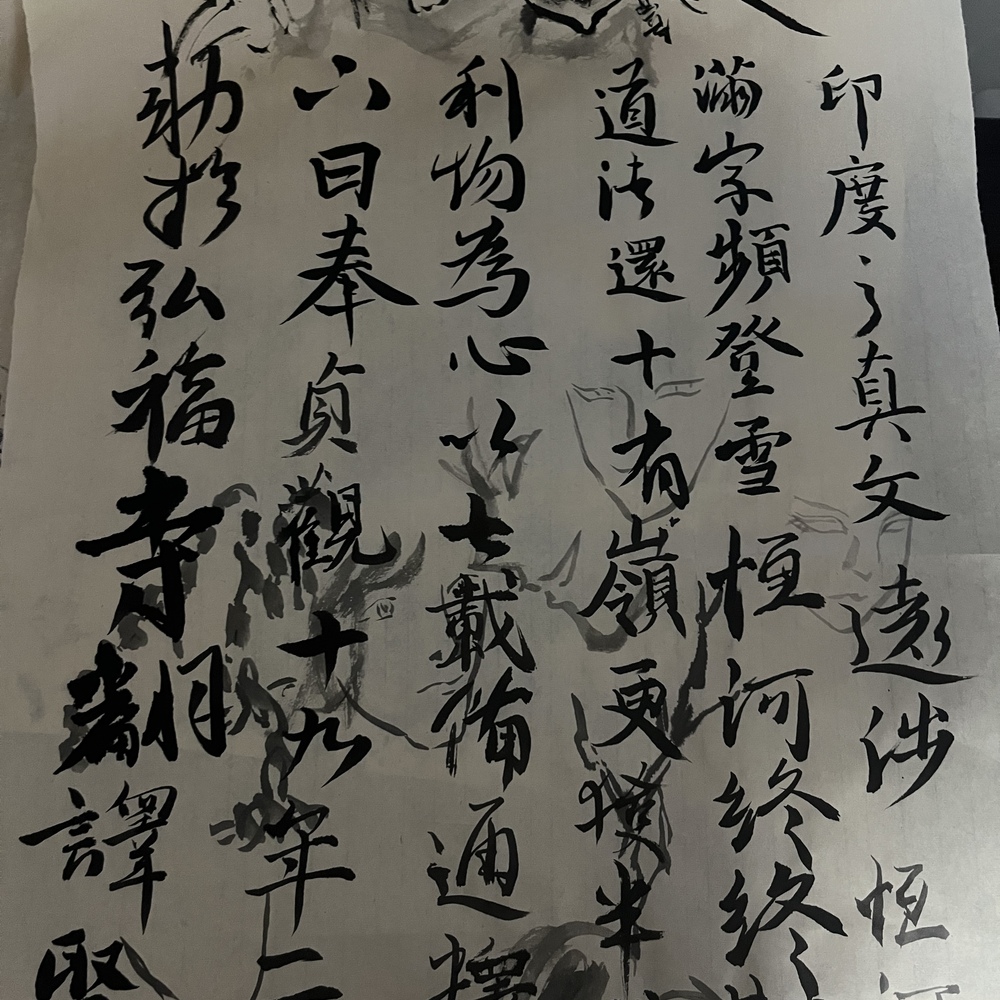 印度之真文遠涉恒河
滿字頻登雪恒河終終
道法還十有嶺更獲半
利物為心以七載備通釋
六日奉貞觀十九年二
勅於弘福寺翻譯聖